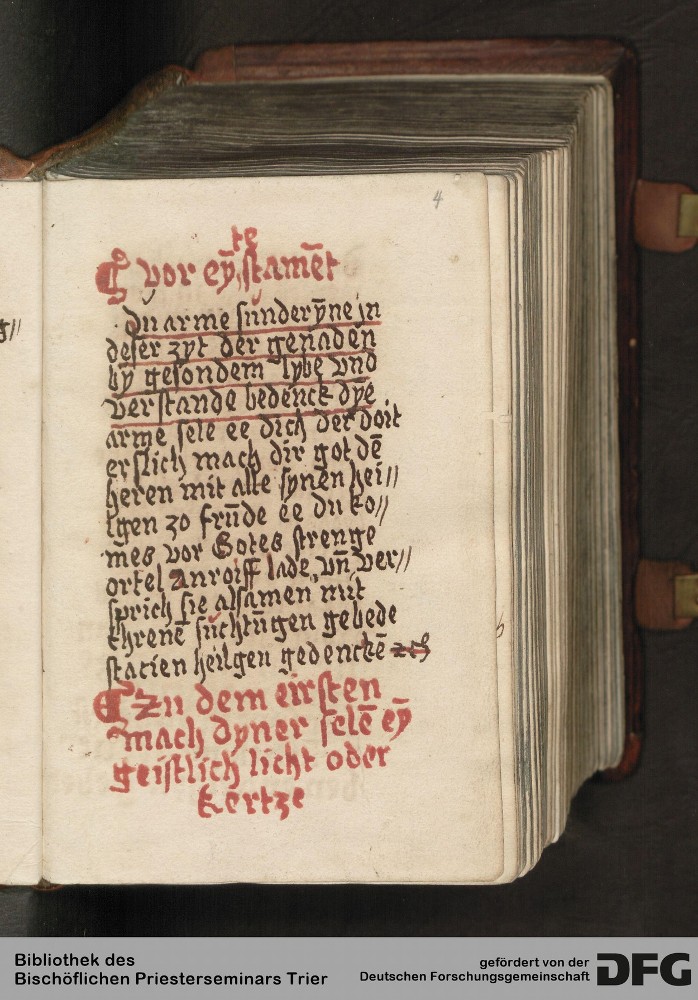 4
te
¶ vor eyn̄ stamēt
Du arme sunderȳne jn
deser zyt der genaden
by gesondem lybe vnd
verstande bedenck dȳe
arme sele ee dich der doit
erslich mach dir got dē
heren mit alle synen hei//
lgen zo frūde ee du ko//
mes vor Gotes strenge
ortel Anroiff lade vn̄ ver//
sprich sie alsamen mit
threnē suchtūgen gebede
stacien heilgen gedenckē
¶ Zu dem eirsten
mach dyner selē eȳ
geistlich licht oder
kertze
Bibliothek des
Bischöflichen Priesterseminars Trier
gefördert von der
Deutschen Forschungsgemeinschaft DFG